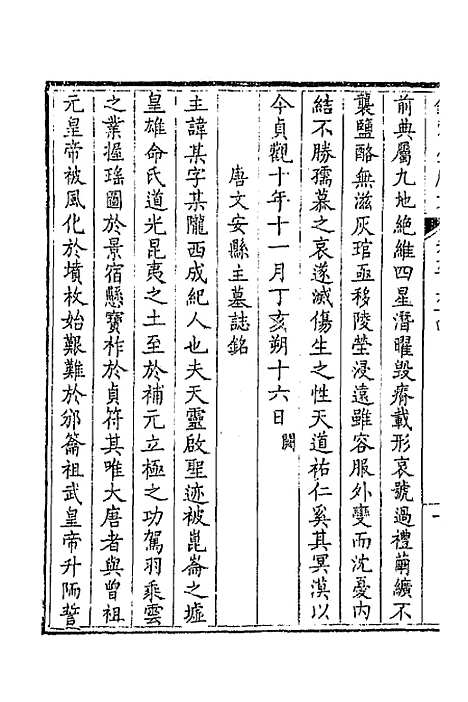 前典屬九地絶維四星潛曜毀瘠載形哀號過禮繭纊不
襲鹽酪無滋灰琯亟移陵塋浸遠雖容服外變而沈憂內
結不勝孺慕之哀遂滅傷生之性天道祐仁奚其冥漠以
今貞觀十年十一月丁亥朔十六日闕
唐文安縣主墓誌銘
主諱某字某隴西成紀人也夫天靈啟聖迹被崑崙之墟
皇雄命氏道光昆夷之土至於補元立極之功駕羽乘雲
之業握瑤圖於景宿懸寶祚於貞符其唯大唐者與曾祖
元皇帝被風化於墳枚始艱難於邠籥祖武皇帝升陑誓